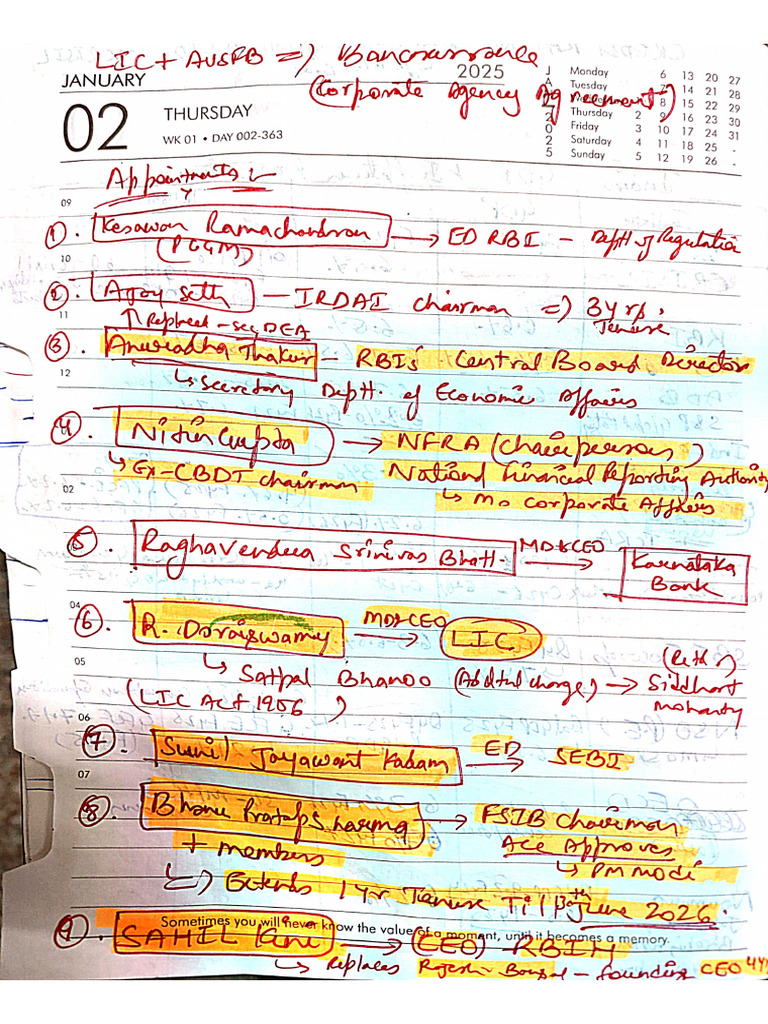 LIC + AUSFB => Bancassurance
JANUARY 2025
(Corporate Agency Agreement)
02 THURSDAY
WK 01 • DAY 002-363
JAN 2025
Monday 6 13 20 27
Tuesday 7 14 21 28
8 15 22 29
Thursday 2 9 16 23 30
Friday 3 10 17 24 31
Saturday 4 11 18 25 -
Sunday 5 12 19 26 -
Appointments :-
09
1). Kesavan Ramachandran → ED RBI - Deptt of Regulation
10
(PGGM)
2). Ajay Seth — IRDAI Chairman => 3 yrs, Tenure
11
↑ Replaced - sec DEA
3). Anuradha Thakur - RBI's Central Board Director
12
↳ Secretary Deptt. of Economic Affairs
4). Nitin Gupta → NFRA (chairperson)
↳ Ex-CBDT chairman National Financial Reporting Authority
02
↳ Mo Corporate Affairs
5) Raghavendra Srinivas Bhatt. MD & CEO → Karnataka Bank
04
6). R. Doraiswamy MD & CEO → LIC
05
↳ Satpal Bhanoo (Additnl charge) → (Retd) Siddhart Mohanty
(LIC Act 1956)
06
7). Sunil Jayawant Kadam ED → SEBI
07
8). Bhanu Pratap Sharma → FSIB Chairman
+ members ACC Approves
↳ PM modi
=> Extends 1 yr Tenure Til 30th June 2026.
Sometimes you will never know the value of a moment, until it becomes a memory.
9). SAHIL Kini → (CEO) - RBIH
↳ Replaces Rajesh Bansal - founding CEO 4Y